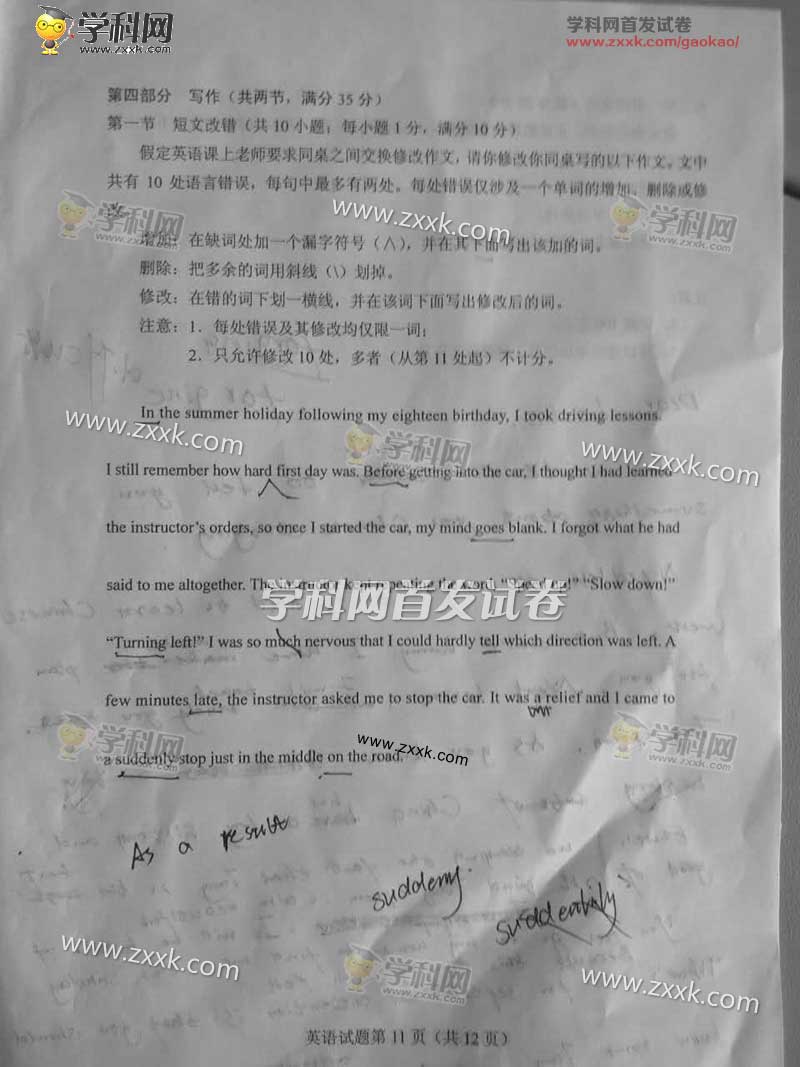 学科网
www.zxxk.com
学科网首发试卷
www.zxxk.com/gaokao/
第四部分 写作（共两节，满分 35 分）
第一节 短文改错（共 10 小题；每小题 1 分，满分 10 分）
假定英语课上老师要求同桌之间交换修改作文，请你修改你同桌写的以下作文。文中
共有 10 处语言错误，每句中最多有两处。每处错误仅涉及一个单词的增加、删除或修
改。
学科网
www.zxxk.com
学科网
增加：在缺词处加一个漏字符号（∧），并在其下面写出该加的词。
删除：把多余的词用斜线（\）划掉。
修改：在错的词下划一横线，并在该词下面写出修改后的词。
注意：1．每处错误及其修改均仅限一词；
2．只允许修改 10 处，多者（从第 11 处起）不计分。
In the summer holiday following my eighteen birthday, I took driving lessons.
www.zxxk.com
学科网
www.zxxk.com
I still remember how hard first day was. Before getting into the car, I thought I had learned
the instructor's orders, so once I started the car, my mind goes blank. I forgot what he had
said to me altogether. The the word "Slow down!"
学科网首发试卷
"Turning left!" I was so much nervous that I could hardly tell which direction was left. A
few minutes late, the instructor asked me to stop the car. It was a relief and I came to
学科网
学科网
www.zxxk.com
a suddenly stop just in the middle on the road.
As a result
suddenly
www.zxxk.com
学科网
www.zxxk.com
英语试题第 11 页（共 12 页）